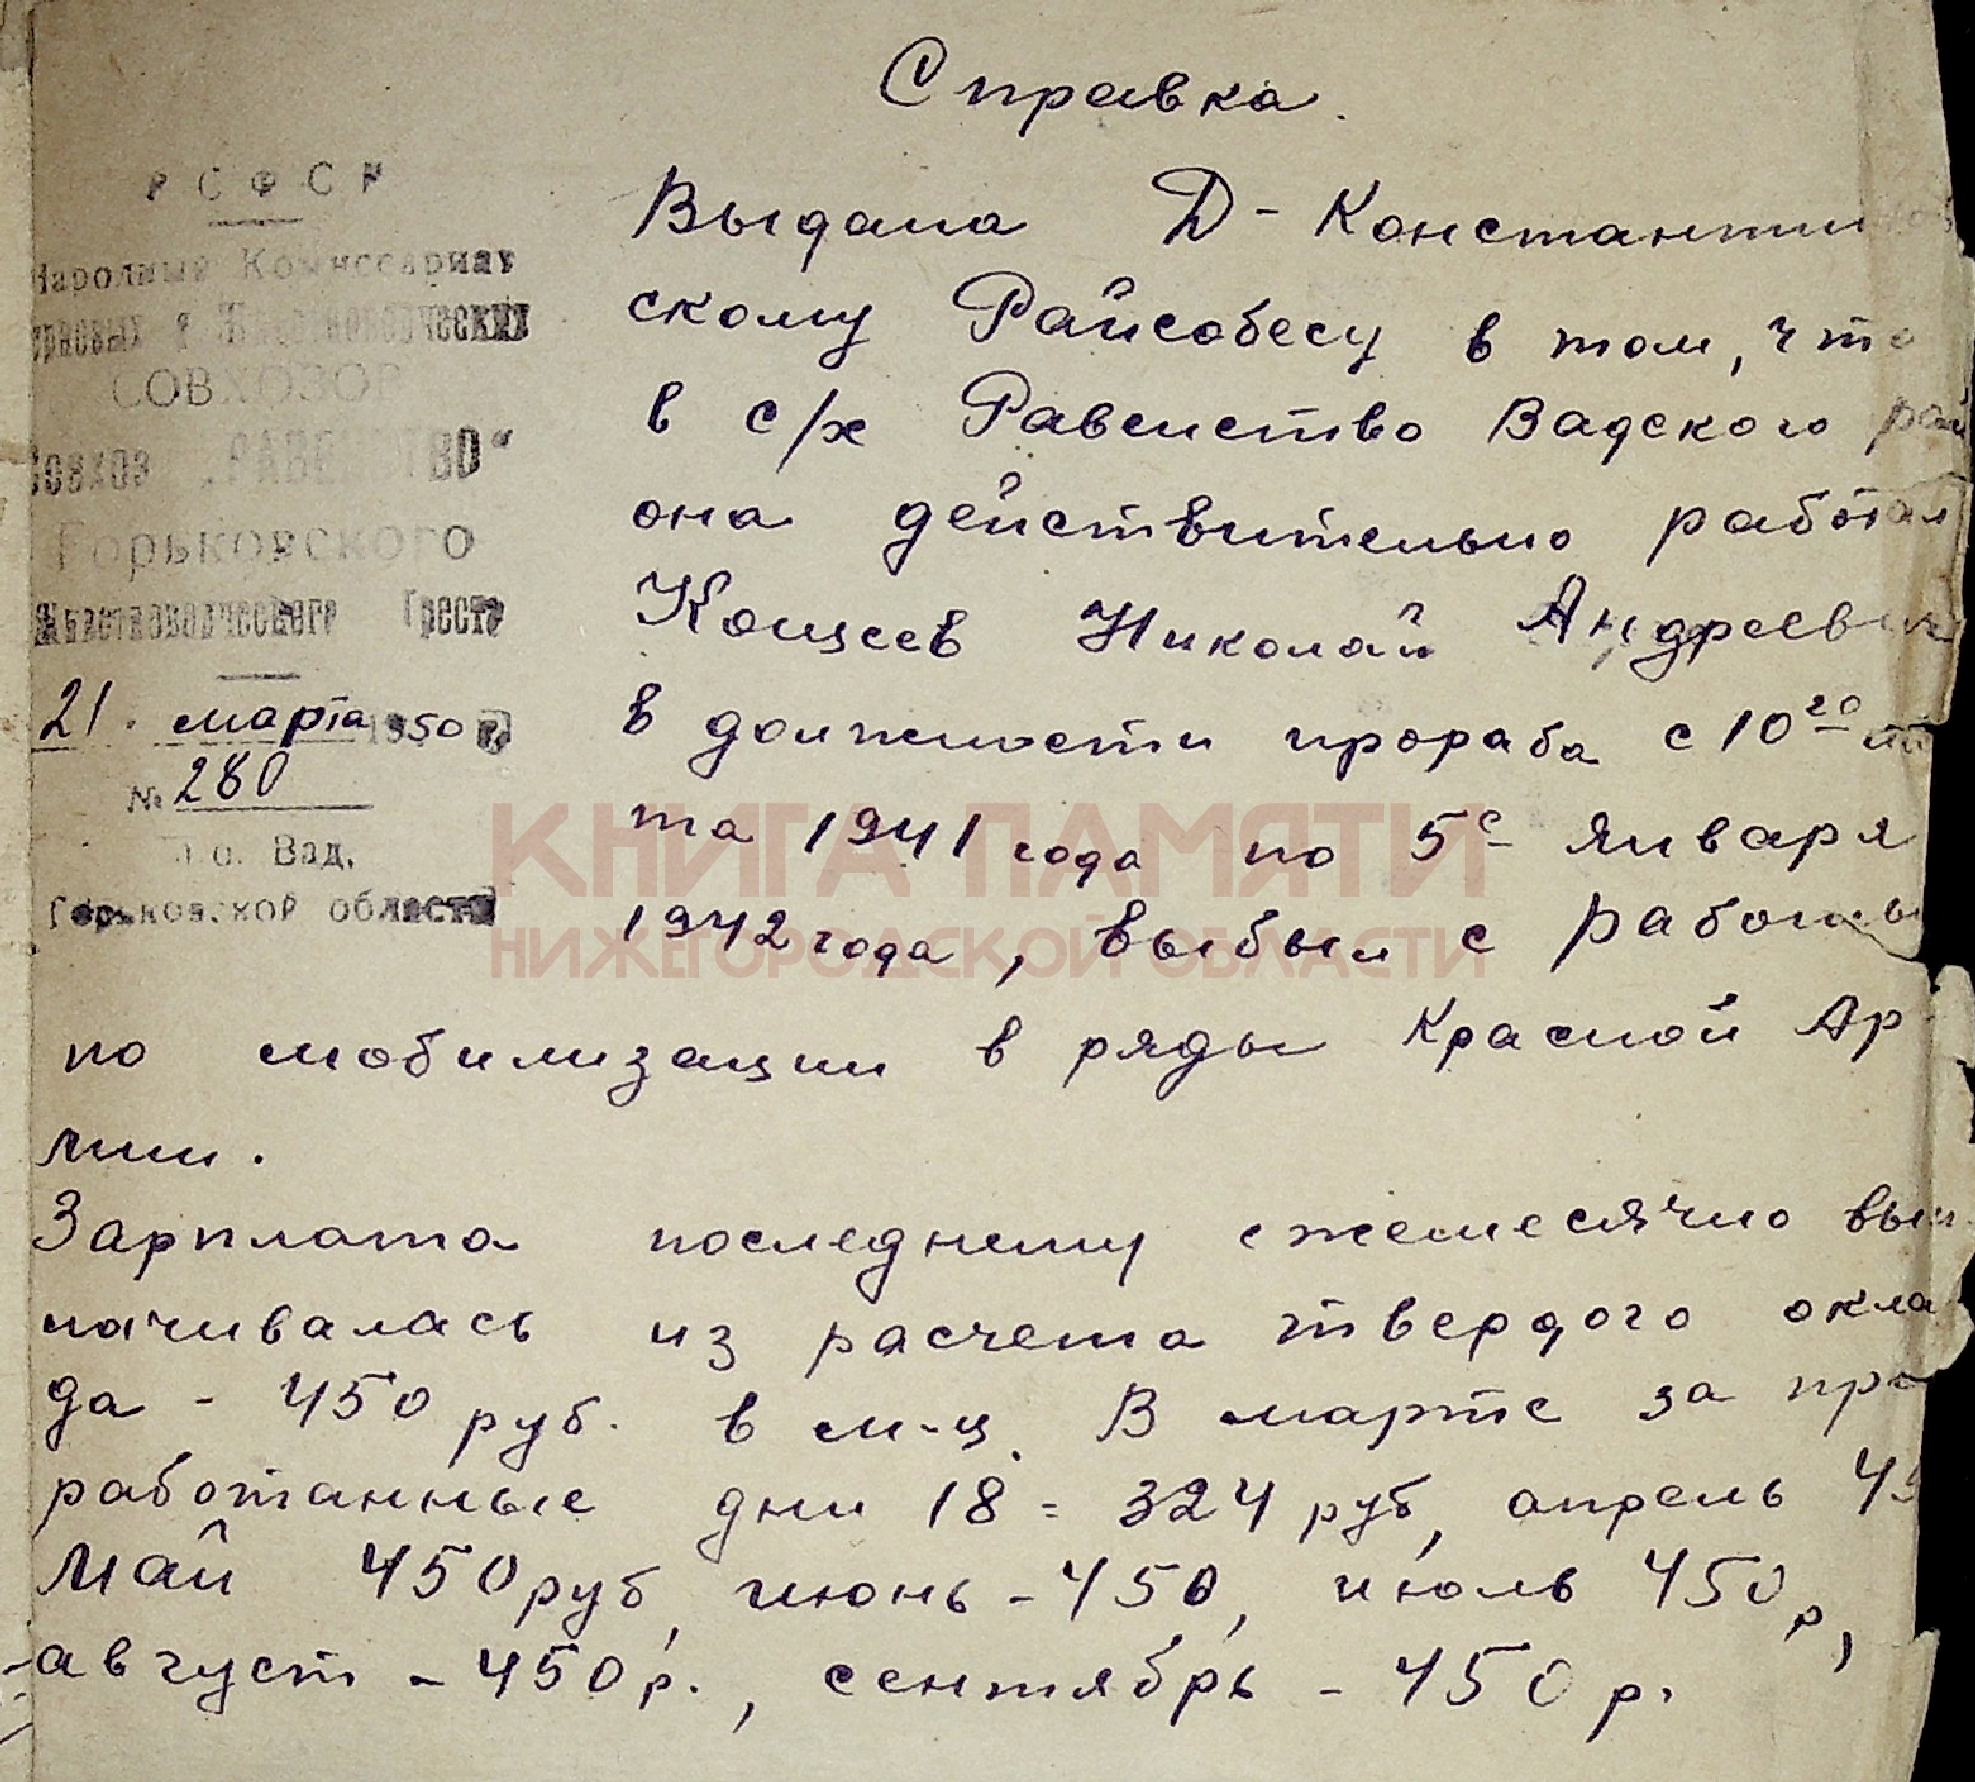 Справка.
РСФСР
Народный Комиссариат
Животноводческих
СОВХОЗОВ
Совхоз „РАВЕНСТВО“
Горьковского
Животноводческого Треста
21. марта 1950 г.
№ 280
п.о. Вад,
Горьковской области
Выдана Д-Константинов
скому Райсобесу в том, что
в с/х Равенство Вадского рай
она действительно работал
Кощеев Николай Андреевич
в должности прораба с 10го мар
та 1941 года по 5е Января
1942 года, выбыл с работы
по мобилизации в ряды Красной Ар-
мии.
Зарплата последнему ежемесячно вып
лачивалась из расчета твердого окла
да - 450 руб. в м-ц. В марте за про
работанные дни 18 = 324 руб, апрель 45
Май 450 руб, июнь - 450, июль 450 р,
август - 450 р., сентябрь - 450 р.
КНИГА ПАМЯТИ
НИЖЕГОРОДСКОЙ ОБЛАСТИ